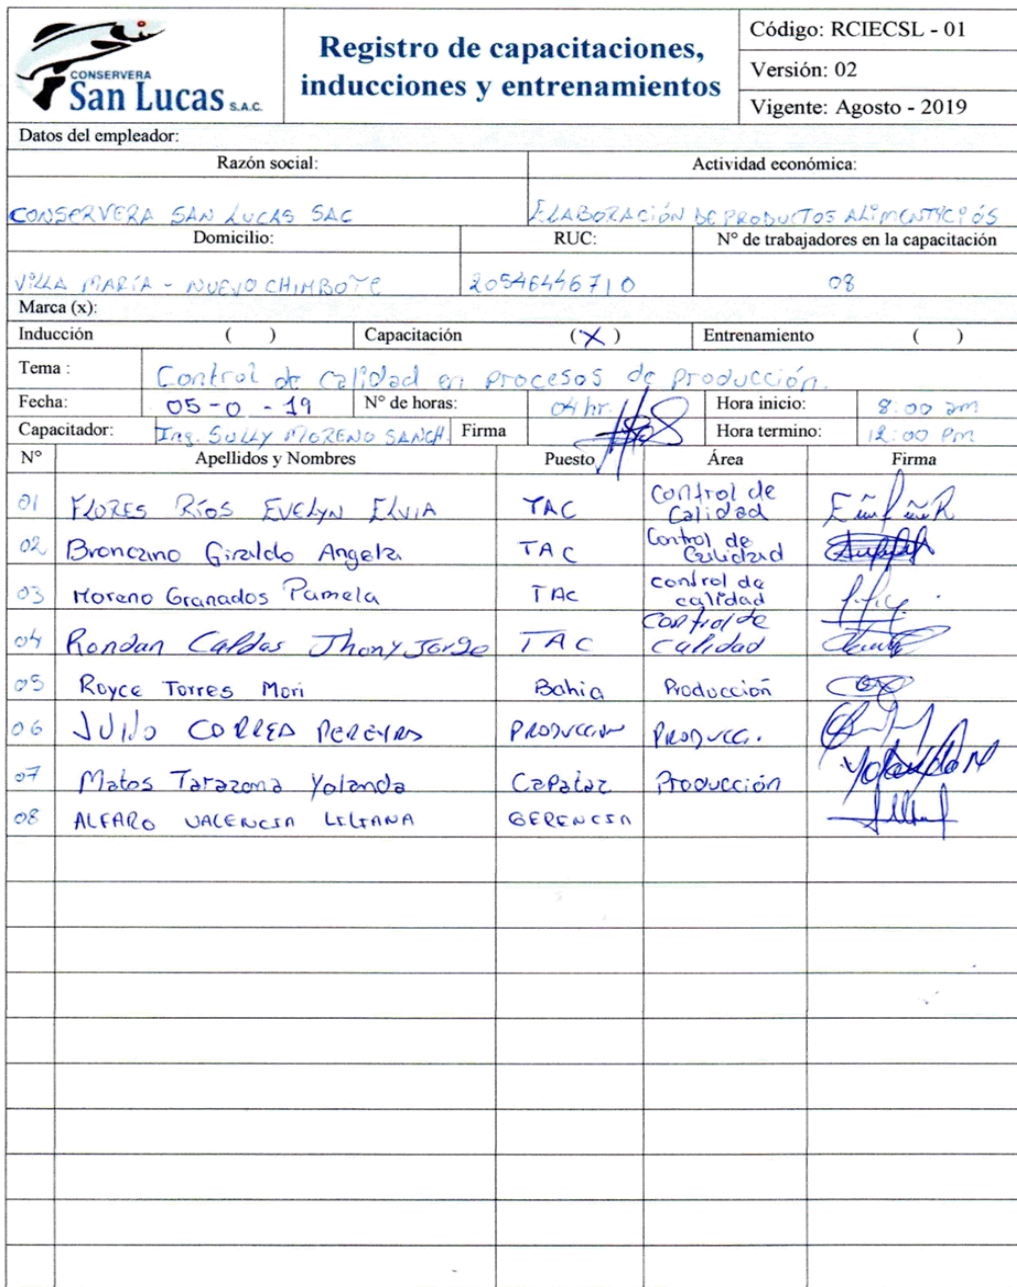 CONSERVERA
San Lucas S.A.C.
Registro de capacitaciones,
inducciones y entrenamientos
Código: RCIECSL - 01
Versión: 02
Vigente: Agosto - 2019
Datos del empleador:
Razón social: Actividad económica:
CONSERVERA SAN LUCAS SAC ELABORACIÓN DE PRODUCTOS ALIMENTICIOS
Domicilio: RUC: N° de trabajadores en la capacitación
VILLA MARÍA - NUEVO CHIMBOTE 20546446710 08
Marca (x):
Inducción ( ) Capacitación (X) Entrenamiento ( )
Tema : Control de calidad en procesos de producción.
Fecha: 05-0 - 19 N° de horas: 04 hr. Hora inicio: 8:00 am
Capacitador: Ing. SULLY MORENO SANCH. Firma Hora termino: 12:00 pm
N° Apellidos y Nombres Puesto Área Firma
01 FLORES RÍOS EVELYN ELVIA TAC Control de Calidad
02 Broncano Giraldo Angela TAC Control de Calidad
03 Moreno Granados Pamela TAC control de calidad
04 Rondan Caldas Jhony Jorge TAC Control de Calidad
05 Royce Torres Mori Bahia Producción
06 JULIO CORREA PEREYRA PRODUCCION PRODUCC.
07 Matos Tarazona Yolanda Capataz Producción
08 ALFARO VALENCIA LILIANA GERENCIA